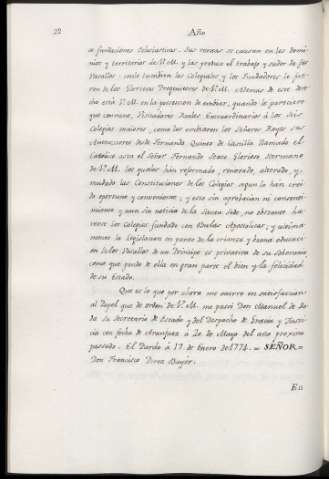 22 Año
se fundaciones Eclesiasticas. Sus rentas se causan en los Domi-
nios y territorios de V. M. y las produce el trabajo y sudor de sus
Vasallos: solo tambien los Colegiales y los Fundadores lo fue-
ron de los Gloriosos Progenitores de V. M. Ademas de este dere-
cho está V. M. en la posesion de embiar, quando le pareciere
que conviene, Visitadores Reales Extraordinarios á los seis
Colegios mayores, como los embiaron los Señores Reyes sus
Antecesores desde Fernando Quinto de Castilla llamado el
Catolico asta el Señor Fernando Sexto Glorioso Hermano
de V. M. los quales han reformado, renovado, alterado, y
mudado las Constituciones de los Colegios segun lo han crei-
do oportuno y conveniente; y esto sin aprobacion ni consenti-
miento y aun sin noticia de la Santa Sede, no obstante ha-
verse los Colegios fundado con Bulas Apostolicas; y ultima-
mente la legislacion en punto de la crianza y buena educaci-
on de los Vasallos de un Principe es privativa de su soberano
como que pende de ella en gran parte el bien y la felicidad
de su Estado.
Que es lo que por ahora me ocurre en satisfaccion
al Papel que de orden de V. M. me pasó Don Manuel de Ro-
da su Secretario de Estado y del Despacho de Gracia y Justi-
cia con fecha de Aranjuez á 20 de Mayo del año proximo
pasado. El Pardo á 17 de Enero de 1774. = SEÑOR =
Don Francisco Perez Bayér.
En